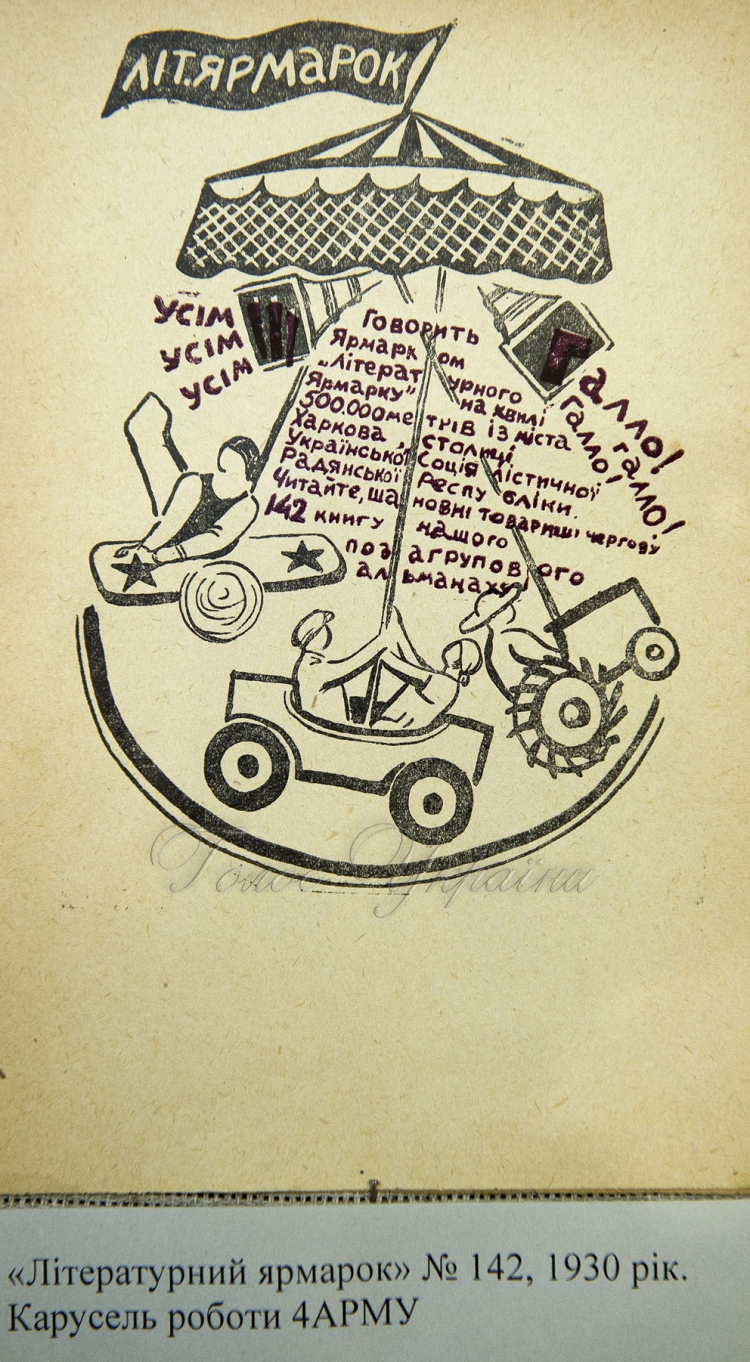 ЛІТ.ЯРМАРОК
УСІМ
УСІМ
УСІМ
!!!
Галло!
галло!
галло!
Говорить
Ярмарком
„Літературного
Ярмарку" на хвилі
500.000 метрів із міста
Харкова, столиці
Української Соціялістичної
Радянської Республіки.
Читайте, шановні товариші чергову
142 книгу нашого
позагрупового
альманаху!
Голос України
«Літературний ярмарок» № 142, 1930 рік.
Карусель роботи 4АРМУ